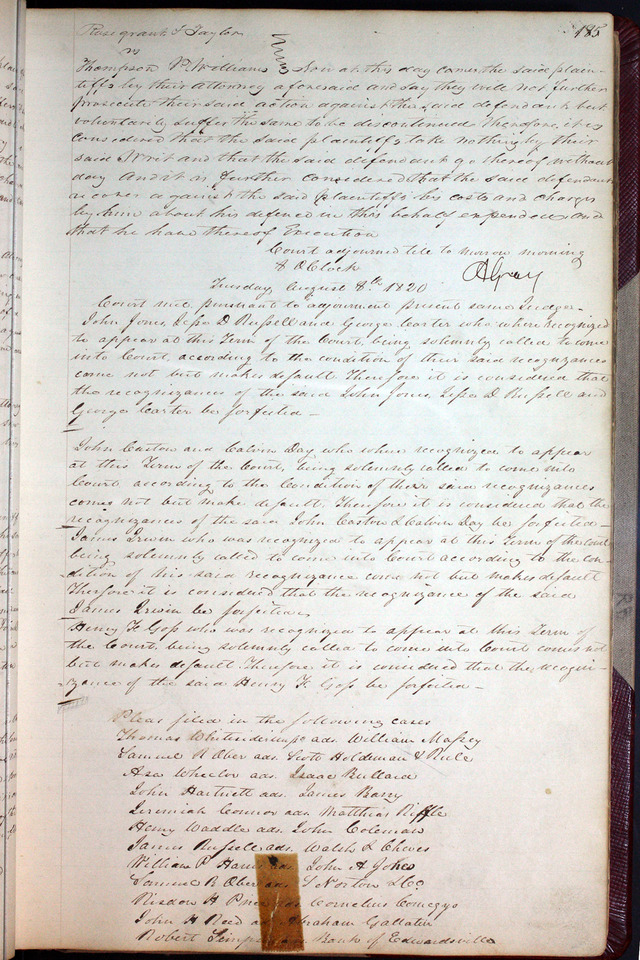 185
Rose grant & Taylor
vs
Thompson P. Williams Now at this day comes the said plain-
tiffs by their attorney aforesaid and say they will not further
prosecute their said action against the said defendant but
voluntarily suffer the same to be discontinued Therefore it is
considered that the said plaintiffs take nothing by their
said Writ and that the said defendant go thereof without
day And it is further considered that the said defendant
recover against the said plaintiffs his costs and charges
by him about his defence in this behalf expended and
that he have thereof Execution
Court adjourned till to morrow morning
8 OClock
Tuesday August 8th 1820
Court met pursuant to adjournment present same Judge.
John Jones, Jesse D Russell and George Carter who where recognized
to appear at this Term of the Court, being solemnly called to come
into Court, according to the condition of their said recognizances
come not but makes default Therefore it is considered that
the recognizances of the said John Jones Jesse D. Russell and
George Carter be forfeited —
John Caston and Calvin Day who where recognized to appear
at this Term of the Court, being solemnly called to come into
Court according to the Condition of their said recognizances
comes not but make default. Therefore it is considered that the
recognizances of the said John Caston & Calvin Day be forfeited —
James Irwin who was recognized to appear at this Term of the Court
being solemnly called to come into Court according to the con-
dition of his said recognizance come not but makes default
Therefore it is considered that the recognizance of the said
James Irwin be forfeited
Henry F. Goss who was recognized to appear at this Term of
the Court, being solemnly called to come into Court comes not
but makes default. Therefore it is considered that the recogni-
zance of the said Henry F. Goss be forfeited —
Pleas filed in the following cases
Thomas ads. William Massey
Samuel R Ober ads. Scott Holdeman & Rule
Asa Wheeler ads. Isaac Bullard
John Hartnett ads. James Barry
Jeremiah Connor ads. Matthias Riffle
Henry Waddle ads. John Coleman
James Russell ads. Walsh & Cheves
William P. Harris ads. John A Jones
Samuel R. Ober ads. S Norton & Co
Risdon H Price ads. Cornelius Comegys
John H Reed ads. Abraham Gallatin
Robert Simpson Bank of Edwardsville